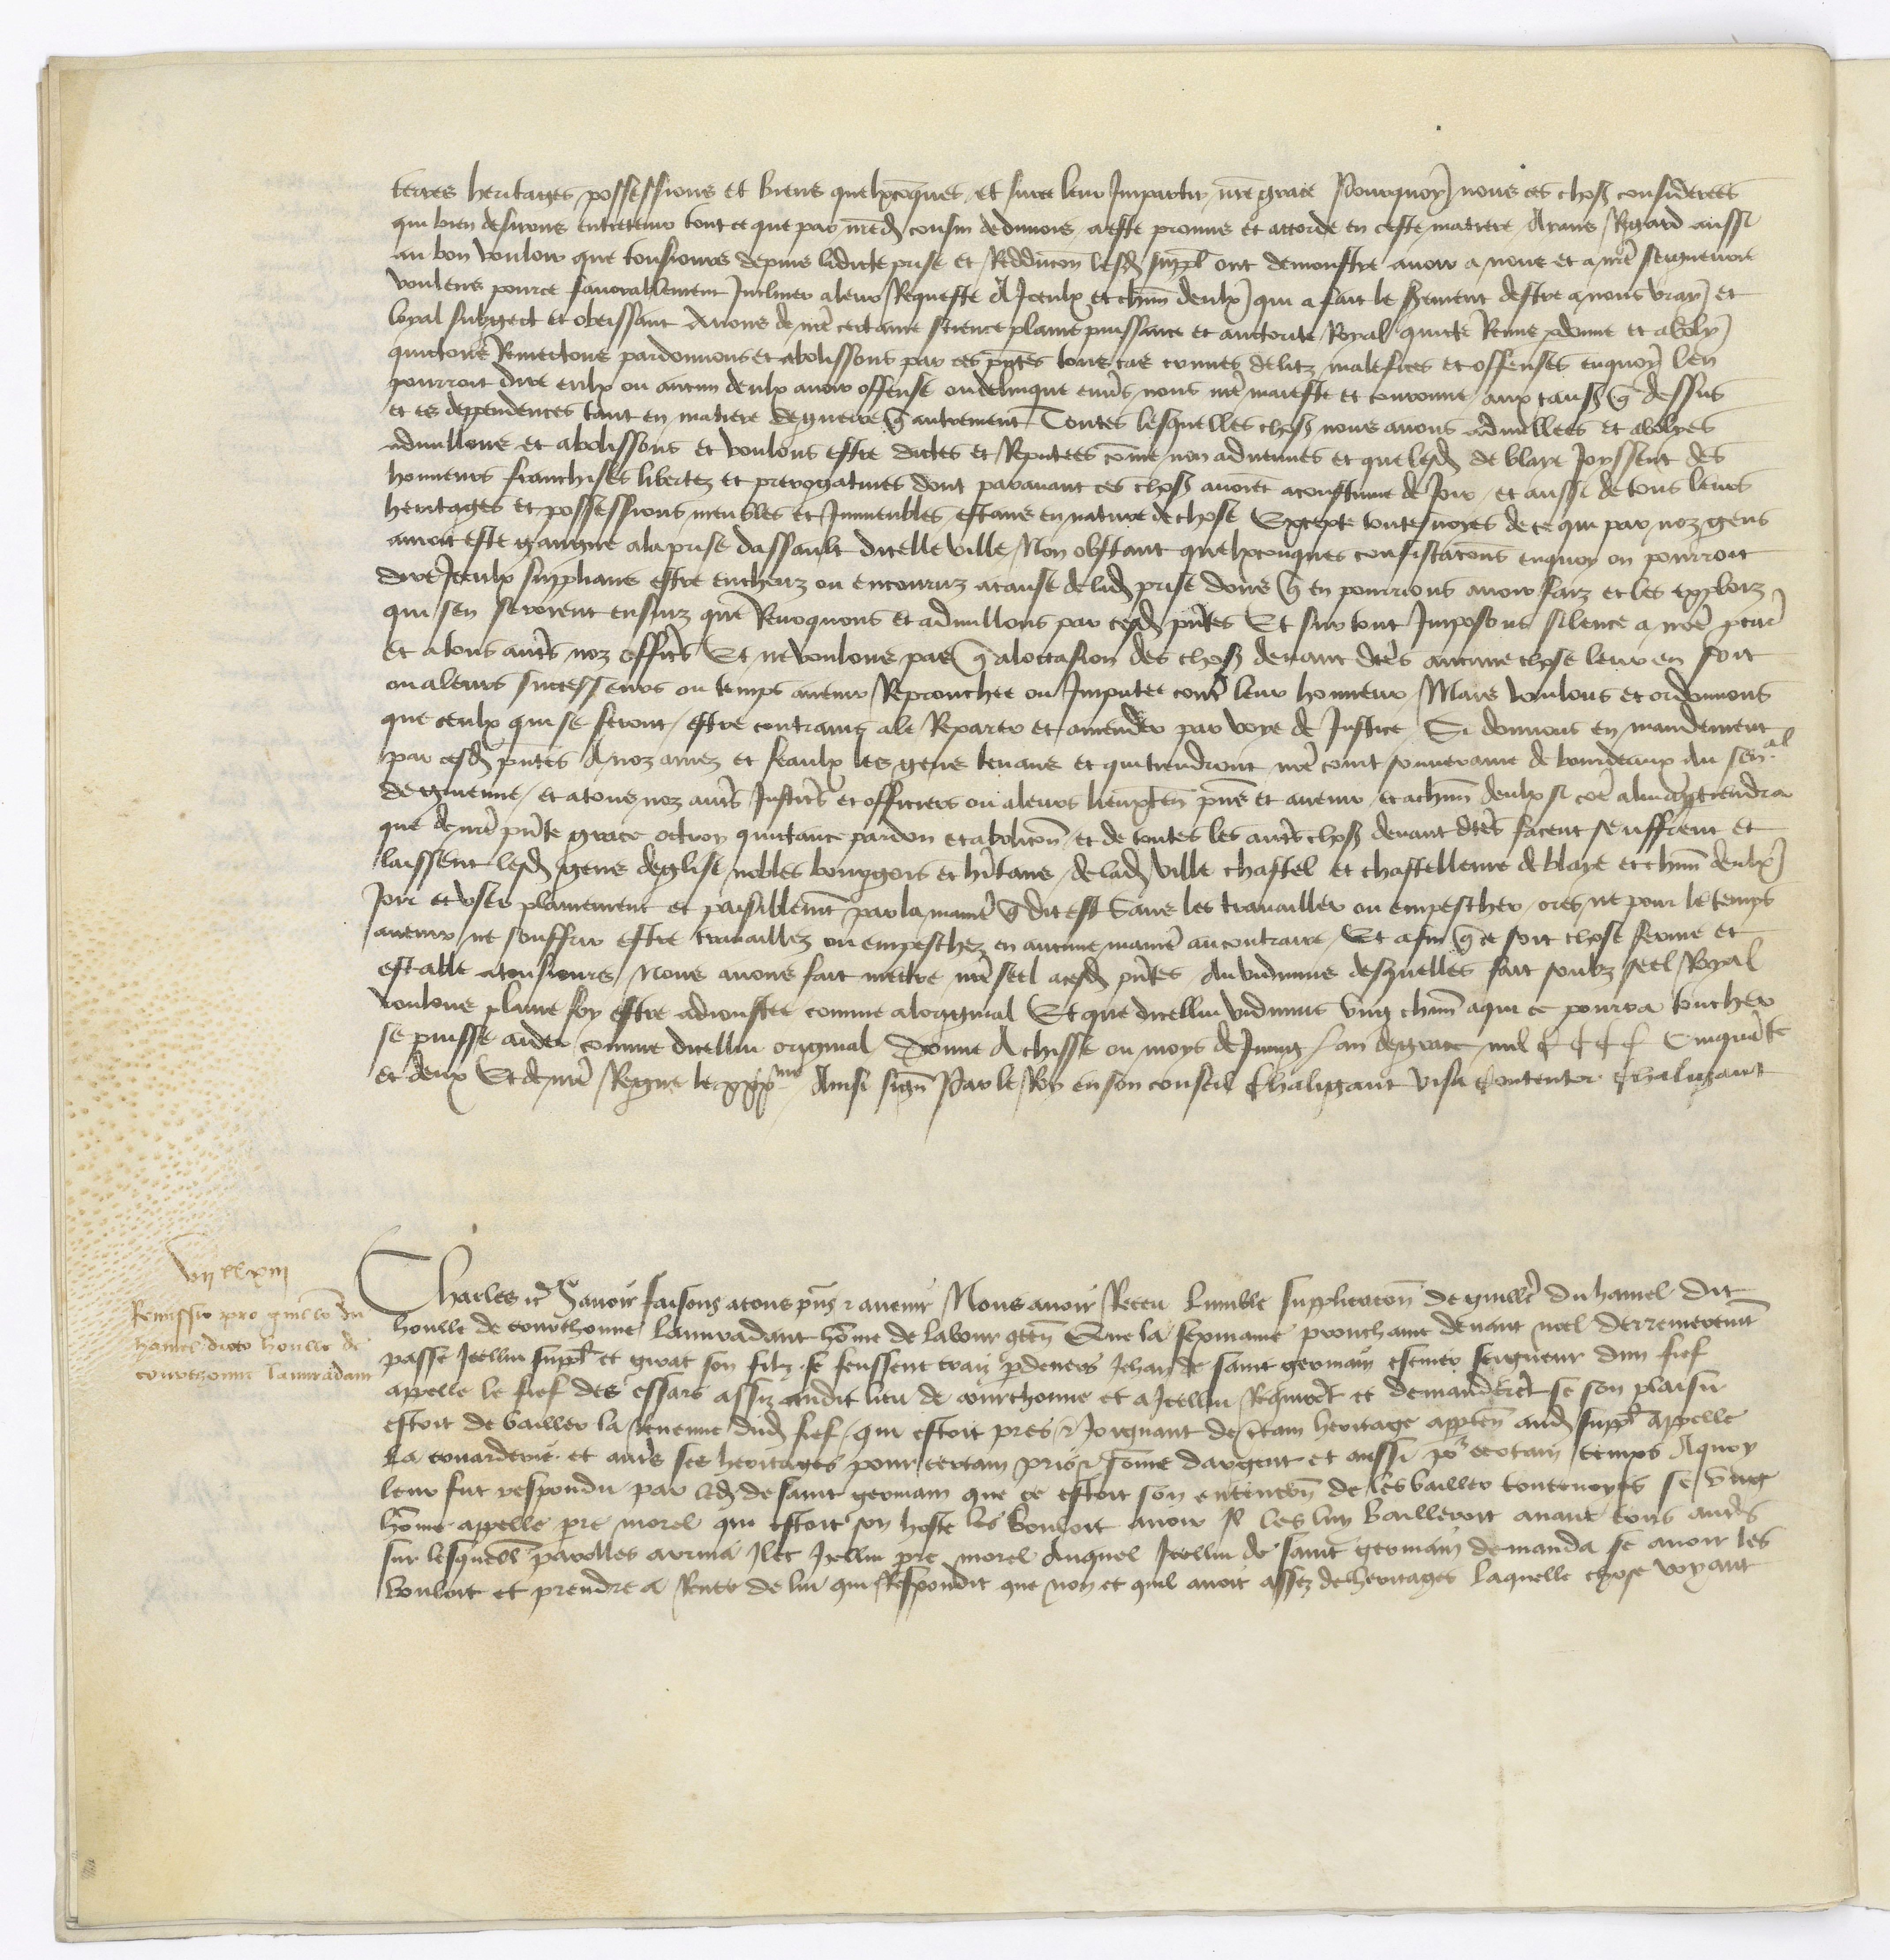 terres heritages possessions et biens quelxconques et sur ce leur Impartir nrē grace Pourquoy nous ces choses considerees
qui bien desirons entretenir tout ce que par nrēd cousin de dunois a este promis et accorde en ceste matiere Aians Regard aussi
au bon vouloir que tousiours depuis ladicte prise et Redduction lesd suppl ont demonstre avoir a nous et a nrē seigneurie
voulens pource favorablement Incliner a leur Requeste A Iceulx et chūn deulx qui a fait le serement destre a nous vray et
loyal subgect et obeissant Avons de nrē certaine science plaine puissance et auctorite Royal quicte Remis pdonne et aboly
quictons Remectons pardonnons et abolissons par ces pñtes tous cas crimes delitz malefices et offenses enquoy len
pourroit dire eulx ou aucun deulx avoir offense ou delinque envs nous nrē maieste et couronne aux causes q dessus
et es deppendences tant en matiere de guerre q autrement Toutes lesquelles choses nous avons adnullees et abolyes
adnullons et abolissons et voulons estre dictes et Reputees cōme non advenues et que lesd de blaye Ioyssent des
honneurs franchises libertez et prerogatives dont paravant ces choses avoiēt acoustume de Joir et aussi de tous leurs
heritages et possessions meubles et Immeubles estans en nature de chose Excepte toutesvoyes de ce qui par noz gens
avoit este gaigne a la prise dassault dicelle ville Non obstant quelxconques confiscacōns enquoy on pourroit
dire Iceulx supplians estre encheuz ou encouruz a cause de lad prise dons q en pourrions avoir faiz et les exploiz
qui sen seroient ensuiz que Revoquons et adnullons par cesd pñtes Et sur tout Imposons silence a nrē pcur
et a tous autrs noz officrs Et ne voulons pas q a loccasion des choses devant dctes aucune chose leur en soit
ou a leurs successeurs ou temps avenir Reprouchee ou Imputee contr leur honneur Mais voulons et ordonnons
que ceulx qui se feront estre contrains a le Reparer et amender par voye de Justice Si donnons en mandement
par cesd pñtes A noz amez et feaulx les gens tenans et qui tiendront nrē court souveraine de bourdeaux au sen.al
de guienne et a tous noz autrs Justicrs et officiers ou a leurs lieuxten pñs et avenir et a chūn deulx si cōe a lui apptiendra
que de nrē pñte grace octroy quictance pardon et abolicōn et de toutes les autrs choses devant dctes facent seuffrent et
laissent lesd gens deglise nobles bourgois et hītans de lad ville chastel et chastellenie de blaye et chūn deulx
Joir et user plainement et paisiblemt par la manir q dit est Sans les travailler ou empescher ores ne pour le temps
avenir ne souffrir estre travaillez ou empeschez en aucune manir au contraire Et afin q ce soit chose ferme et
estable a tousiours Nous avons fait mettre nrē seel a cesd pñtes Au vidimus desquelles fait soubz seel Royal
voulons plaine foy estre adioustee comme a loriginal Et que dicellui vidimus ung chūn a qui ce pourra toucher
se puisse aider comme dicellui original Donne A chisse ou moys de Juing lan de grace mil CCCC Cinquāte
et deux Et de nrē Regne le xxxme Ainsi signe Par le Roy en son conseil Chaligant visa Contentor Chaligant
VIIcLXIII
Remissio pro guillō du
hamel dicto houlle de
courthonne lanurdant
Charles ec Savoir faisons a tous pñs & avenir Nous avoir Receu lumble supplicacōn de guillē du hamel dit
houlle de courthonne lamurdant hōme de labour cten Que la sepmaine prouchaine devant noel derrenieremt
passe Icellui suppl et girat son filz se feussent traiz pdevers Jehan de saint germain escuier seigneur dun fief
appelle le fief des essars assiz audit lieu de courthonne et a Icellui Requirēt et demanderēt se son plaisir
estoit de bailler la ... dud fief qui estoit pres & Joignant de ctain heritage apptēn aud suppl appelle
la couarderie et autrs ses heritages pour certain pris & sōme dargent et aussi po certain temps Aquoy
leur fut respondu par led de saint germain que ce estoit son entencōn de les bailler toutesvoyes se ung
hōme appelle pre morel qui estoit son hoste les vouloit avoir Il les luy bailleroit avant tous autrs
sur lesquell parolles arriva Ilec Icellui pre morel Auquel Icellui de saint germain demanda se avoir les
vouloit et prendre a Rente de lui qui Respondit que non et quil avoit assez de heritages laquelle chose voyant